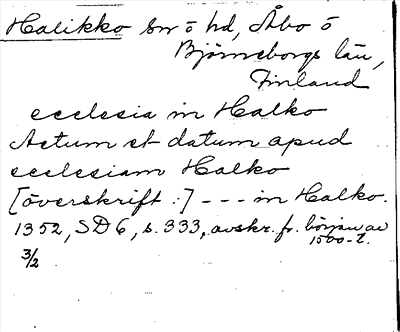 Halikko sn o hd, Åbo o
Björneborgs län,
Finland
ecclesia in Halko
Actum et datum apud
ecclesiam Halko
[överskrift:] --- in Halko.
1352, SD 6, s. 333, avskr. fr. början av
1500-t.
3/2